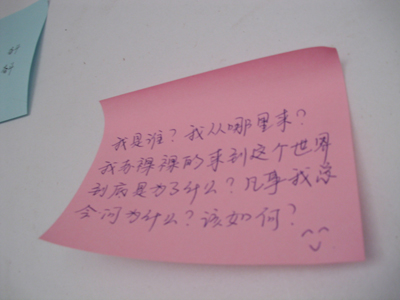 我是谁？我从哪里来？
我赤裸裸的来到这个世界
到底是为了什么？凡事我总
会问为什么？该如何？